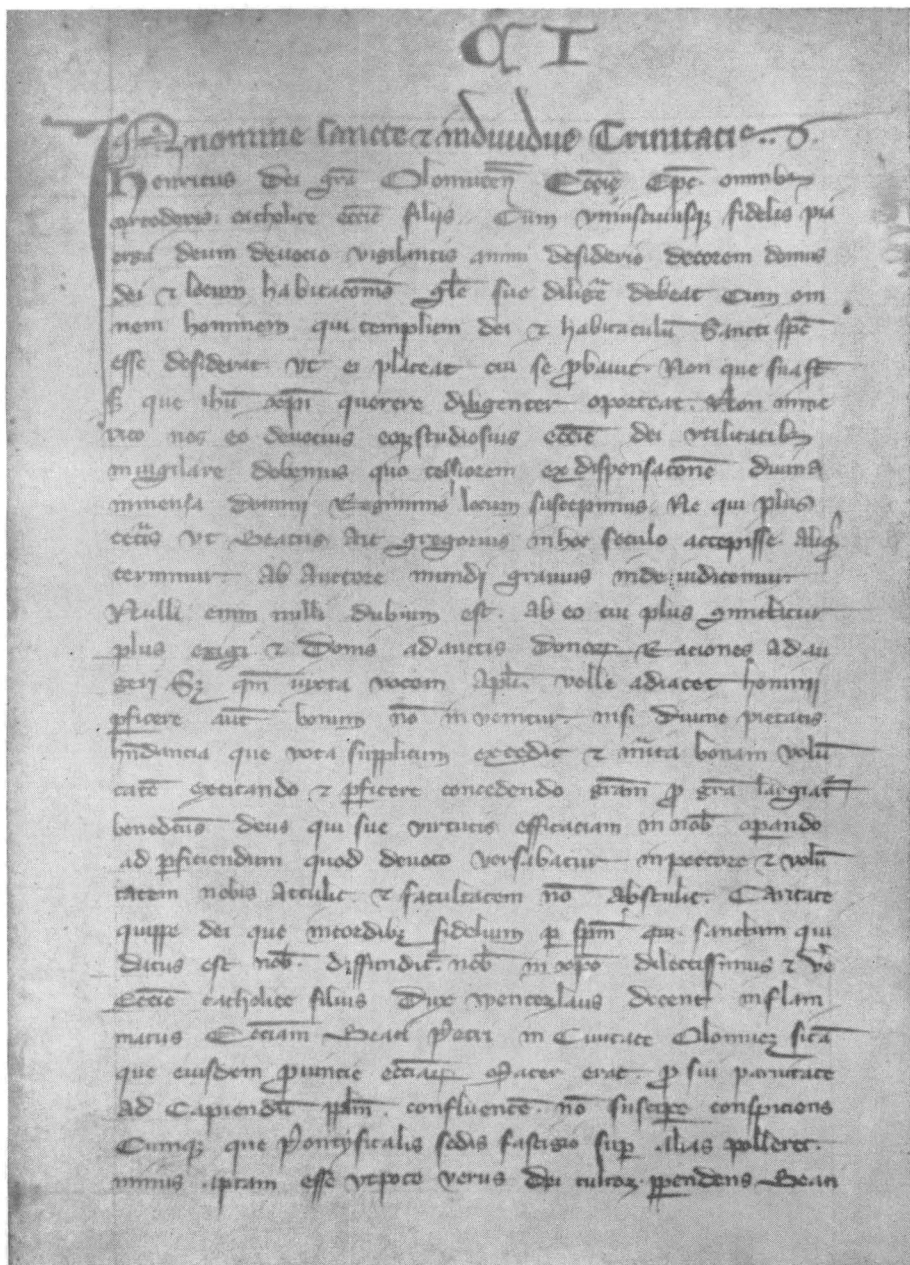 C I
IN nomine sancte ⁊ individue Trinitatis
Henricus dei grā Olomucen̄ Eccīe Ep̄c omnibꝫ
ortodoxis catholice eccīe filijs Cum vniuscuiusqꝫ fidelis pia
erga deum deuocio vigilantis animi desiderio decorem domus
dei ⁊ locum habitacōnis gl̄e sue diligē̄ debeat Cum om
nem hominem qui templum dei ⁊ habitaculū Sancti sp̄c
esse desiderat vt ei placeat cui se ꝓbauit Non que sua st̄
sꝫ que ihū xp̄i querere diligenter oporteat Non inme
rito nos eo deuocius eoqꝫ studiosius eccīe dei vtilitatibꝫ
inuigilare debemus quo celsiorem ex dispensacōne diuina
in mensa domini Regiminis locum suscepimus Ne qui plus
cet̄is vt Beatus Ait gregorius in hoc seculo accepisse Aliqͥd
cernimur Ab Auctore mundi grauius inde iudicemur
Nulli enim nulli dubium est Ab eo cui plus ꝯmictitur
plus exigi ⁊ Donis ad auctis donorꝝ Raciones Ad au
geri Sꝫ qm̄ iuxta vocem Apl̄i velle adiacet homini
ꝑficere aut̄ bonum nō invenitur nisi Diuine pietatis
que vota supplicum excedit ⁊ m̄ita bonam volū
tatē excitando ⁊ ꝑficere concedendo grām ꝓ grā largiat̄
benedc̄us deus qui sue virtutis efficaciam in nob̄ oꝑando
ad ꝑficiendum quod deuoto versabatur in pectore ⁊ volū
tatem nobis Attulit ⁊ facultatem nō Abstulit Caritate
quippe dei que in cordibꝫ fidelium ꝑ sp̄m qui sanctum qui
datus est nob̄ diffundit̄ nob̄ in xp̄o dilectissimus ⁊ v̄e
Eccīe catholice filius Dux wenczlaus decent̄ inflam
matus Eccīam Beati Petri in Ciuitate Olomucꝫ sitā
que eiusdem ꝓuincie eccīaꝝ Mater erat ꝓ sui paruitate
Ad Capiendū ppl̄m confluentē nō sufficere conspiciens
Cumqꝫ que Pontyficalis sedis fastigio suꝑ Alias polleret
minus aptam esse vtpote verus dei cultor ꝑpendens Beati